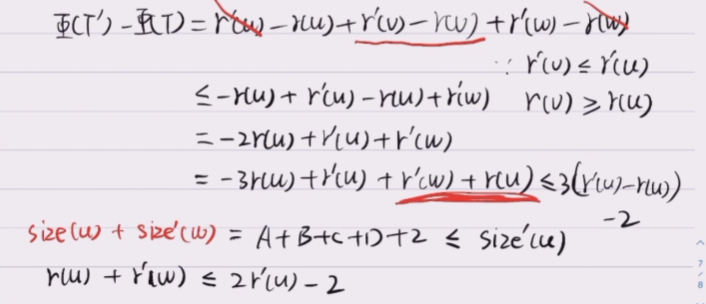 Φ(T') - Φ(T) = r'(u) - r(u) + r'(v) - r(v) + r'(w) - r(w)
∵ r'(v) ≤ r'(u)
≤ -r(u) + r'(u) - r(u) + r'(w) r(v) ≥ r(u)
= -2r(u) + r'(u) + r'(w)
= -3r(u) + r'(u) + r'(w) + r(u) ≤ 3(r'(u) - r(u))
-2
size(u) + size'(w) = A+B+C+D+2 ≤ size'(u)
r(u) + r'(w) ≤ 2r'(u) - 2
7
8